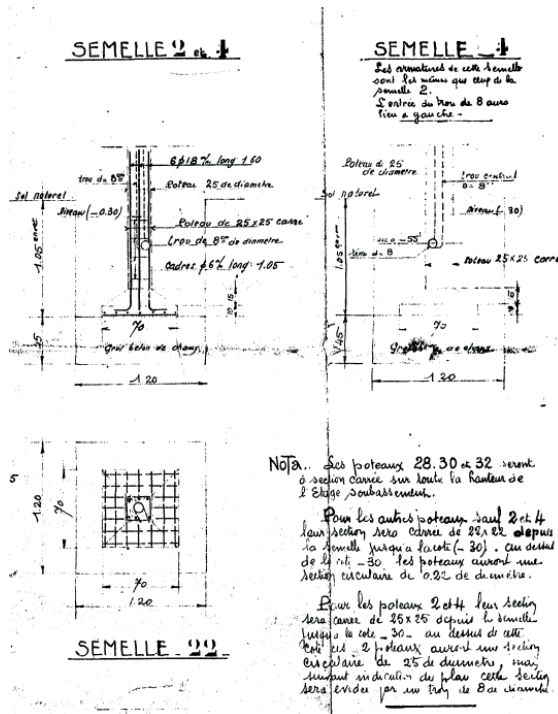 SEMELLE 2 et 4
6 φ 18 m/m long 1.60
trou de 8
Poteau 25 de diametre
Sol naturel
Niveau (-0.30)
Poteau de 25 x 25 carré
trou de 8 de diametre
Cadres φ 6 m/m long: 1.05
1.05
10 15
70
Gros béton de chaux
45
1.20
SEMELLE _4
Les armatures de cette semelle
sont les mêmes que celle de la
semelle 2.
L'entrée du trou de 8 aura
lieu a gauche -
Poteau de 25
de diametre
trou central
Sol naturel
Niveau (-30)
1.05
-55
trou de 8
Poteau 25 x 25 carré
70
45
Gros de chaux
1.20
5
1.20
70
70
1.20
SEMELLE _22
NOTA.. Les poteaux 28.30 et 32 seront
à section carrée sur toute la hauteur de
l'Etage soubassement.
Pour les autres poteaux sauf 2 et 4
leur section sera carrée de 22 x 22 depuis
la semelle jusqu'a la cote (-30). au dessus
de la cote -30 les poteaux auront une
section circulaire de 0.22 de diamètre.
Pour les poteaux 2 et 4 leur section
sera carrée de 25 x 25 depuis la semelle
jusqu'a la cote -30- au dessus de cette
cote ces 2 poteaux auront une section
circulaire de 25 de diametre, mais
suivant indication du plan cette section
sera evidée par un trou de 8 de diametre